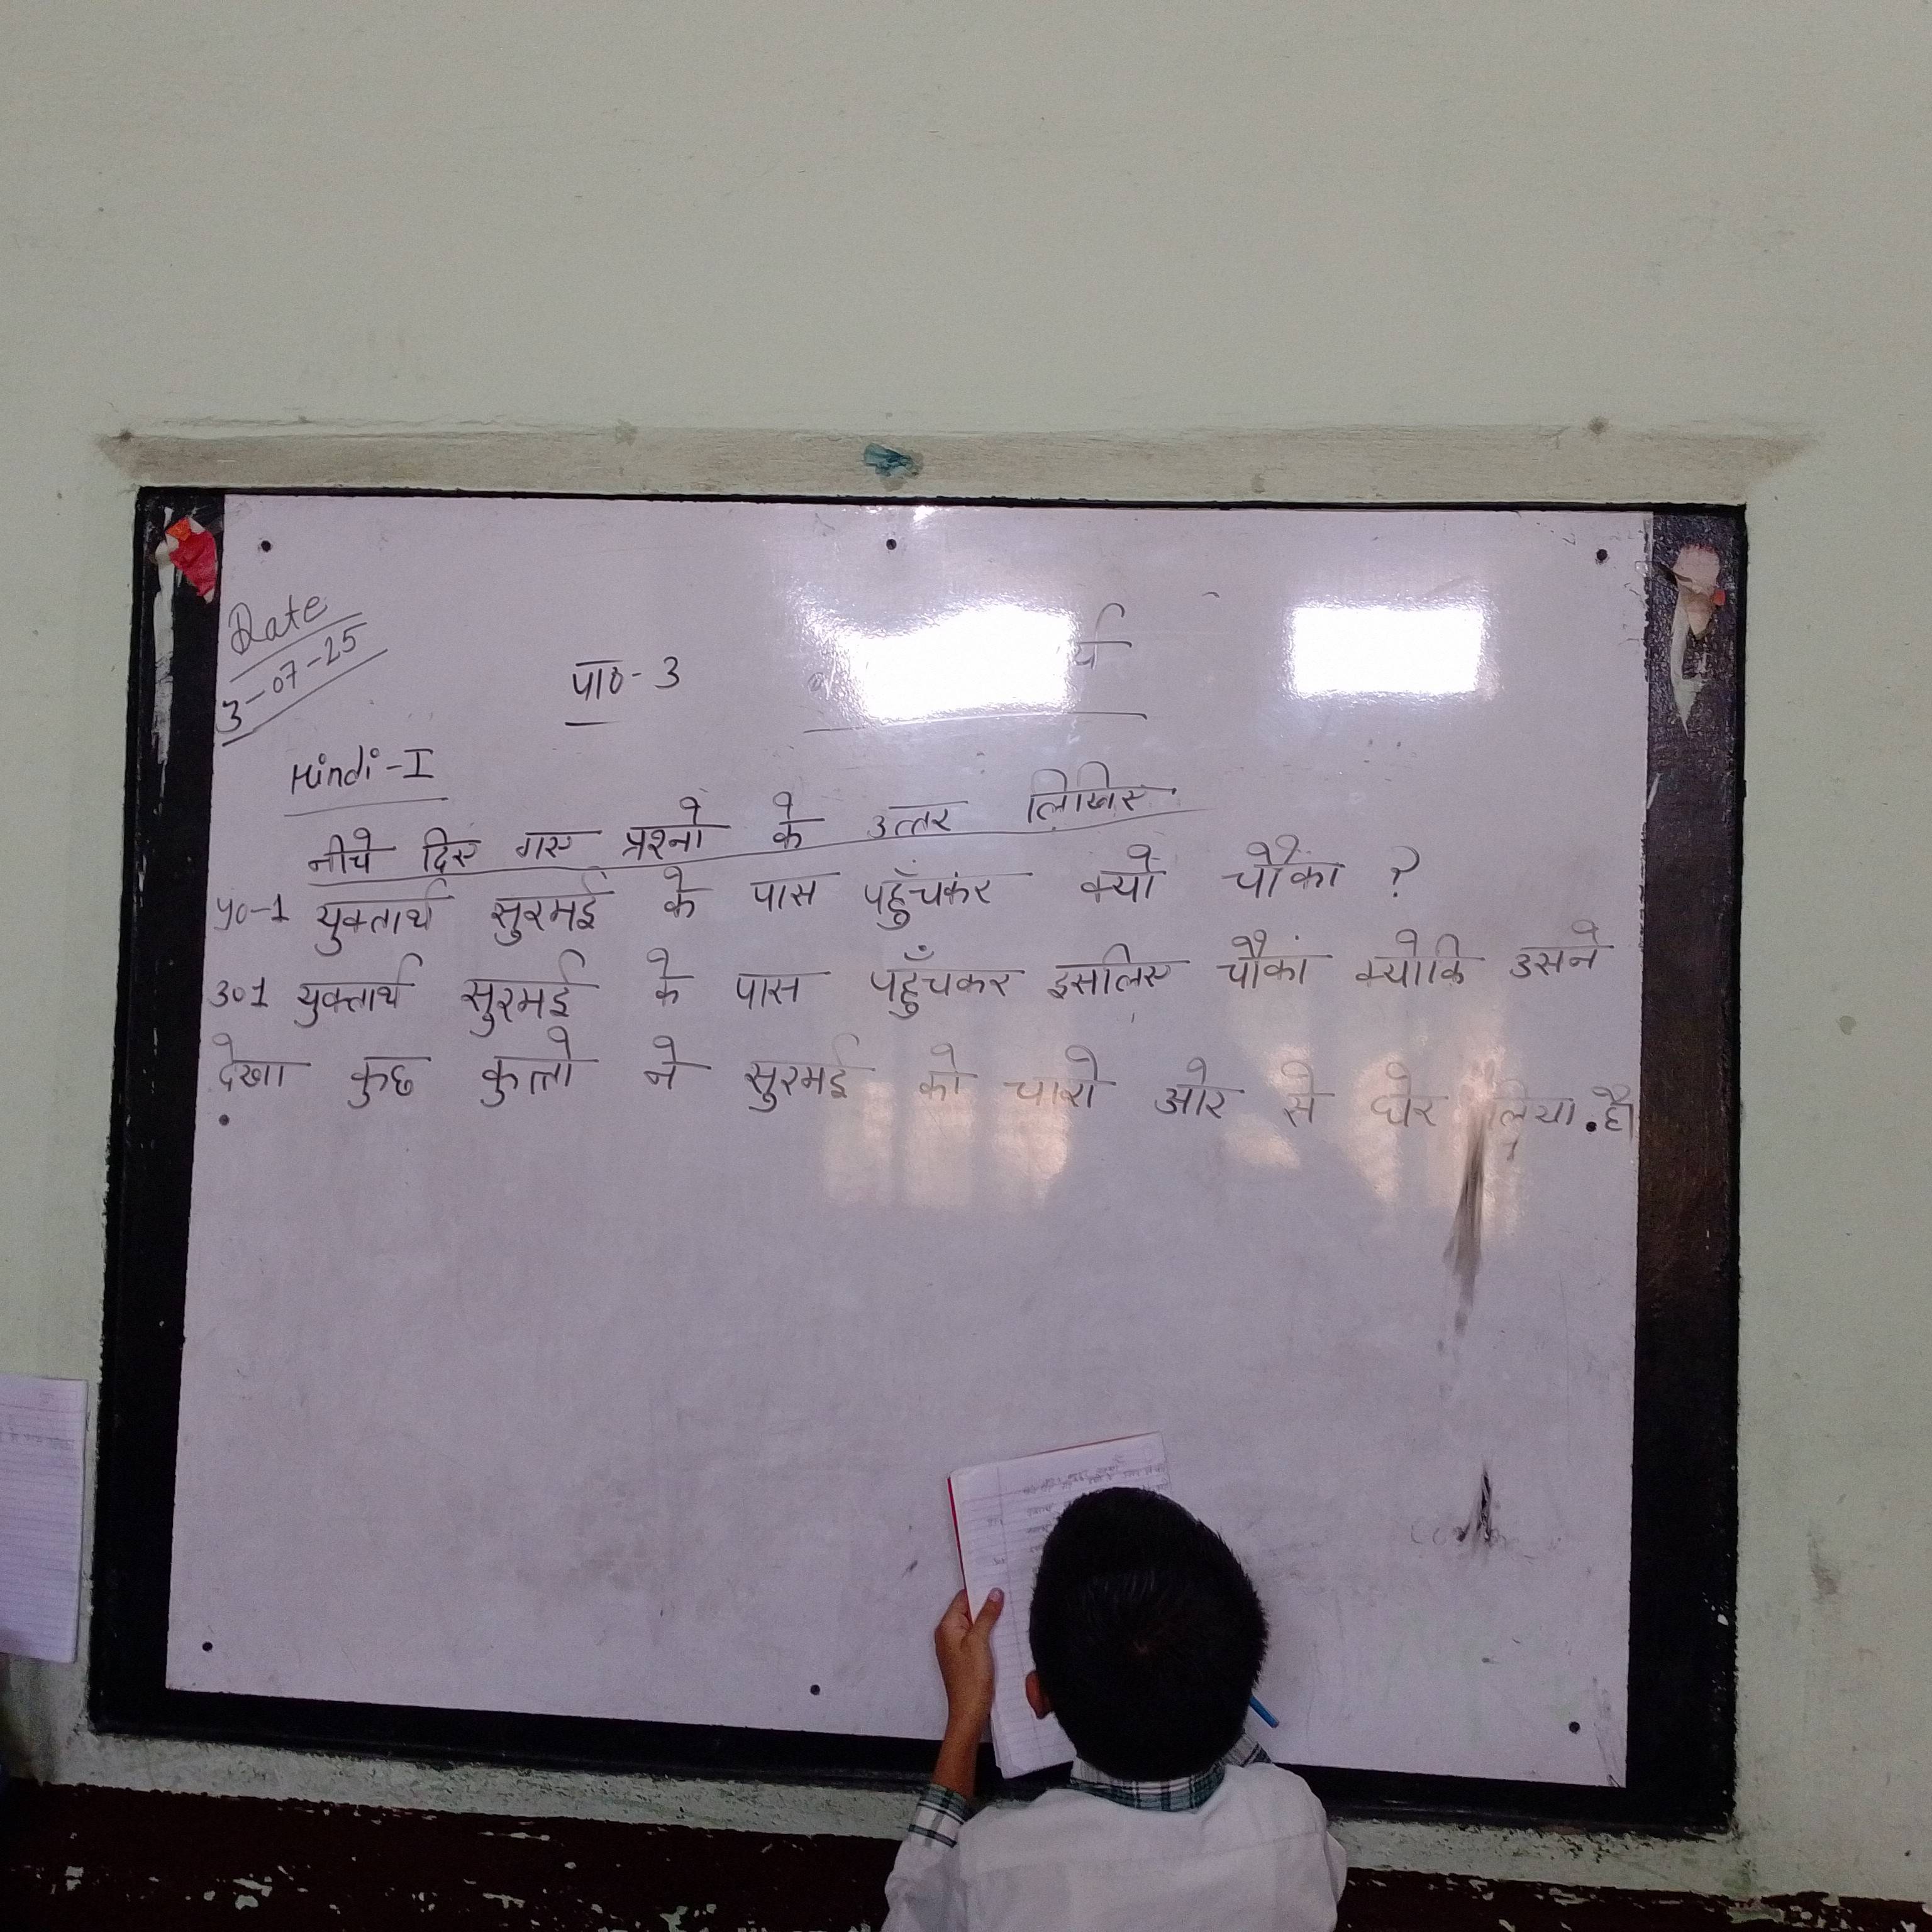 Date
3-07-25
पाठ-3
Hindi-I
नीचे दिए गए प्रश्नो के उत्तर लिखिए
प्र०-1 युक्तार्थ सुरमई के पास पहुँचकर क्यों चौंका ?
उ०1 युक्तार्थ सुरमई के पास पहुँचकर इसलिए चौंका क्योकि उसने
देखा कुछ कुत्तो ने सुरमई को चारो ओर से घेर लिया है।